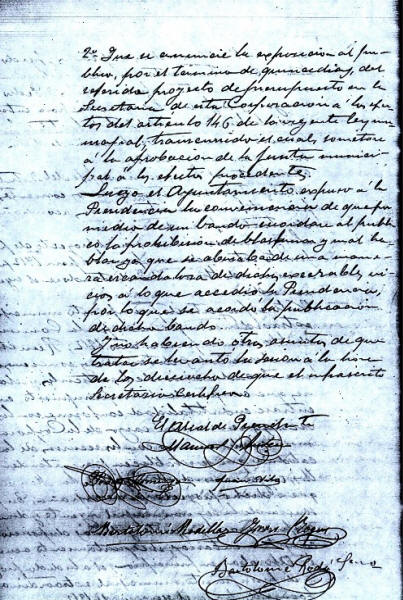 2º Que se anuncie la exposicion al pu-
blico, por el termino de quince dias, del
referido proyecto de presupuesto en la
Secretaria de esta Corporacion a los efec-
tos del articulo 146 de la vigente ley mu-
nicipal, transcurrido el cual, sometere
a la aprobacion de la Junta munici-
pal a los efectos procedentes.
Luego el Ayuntamiento expuso a la
Presidencia la conveniencia de que por
medio de un bando recordare al publi-
co la prohibicion de blasfemar y mal ha-
blar, que se abusaba de una mane-
ra escandalosa de dichos execrables vi-
cios, a lo que accedio la Presidencia,
por lo que se acordó la publicacion
de dicho bando.
Y no habiendo otros asuntos de que
tratar se levanto la sesion a la hora
de las dieciocho de que el infrascrito
Secretario certifico.
El Alcalde Presidente
Manuel
Juan Vila
Bartolomé Rodilla
Bartolomé Rodri